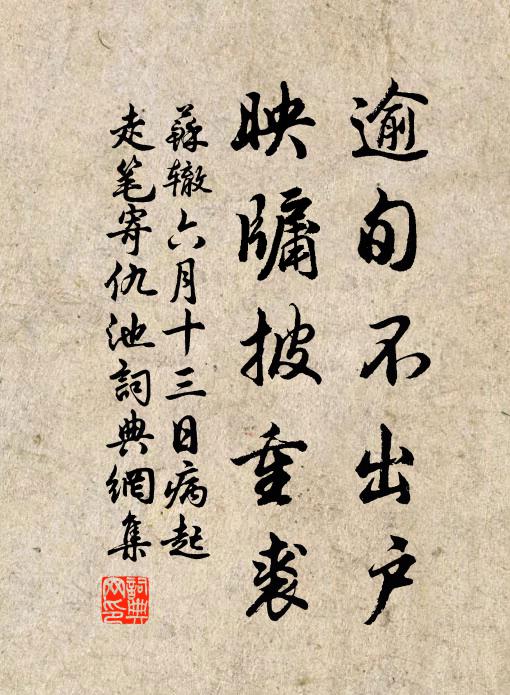 逾旬不出户
映牖披重裘
蘇辙六月十三日病起
走笔寄仇池詞典網集
詞典